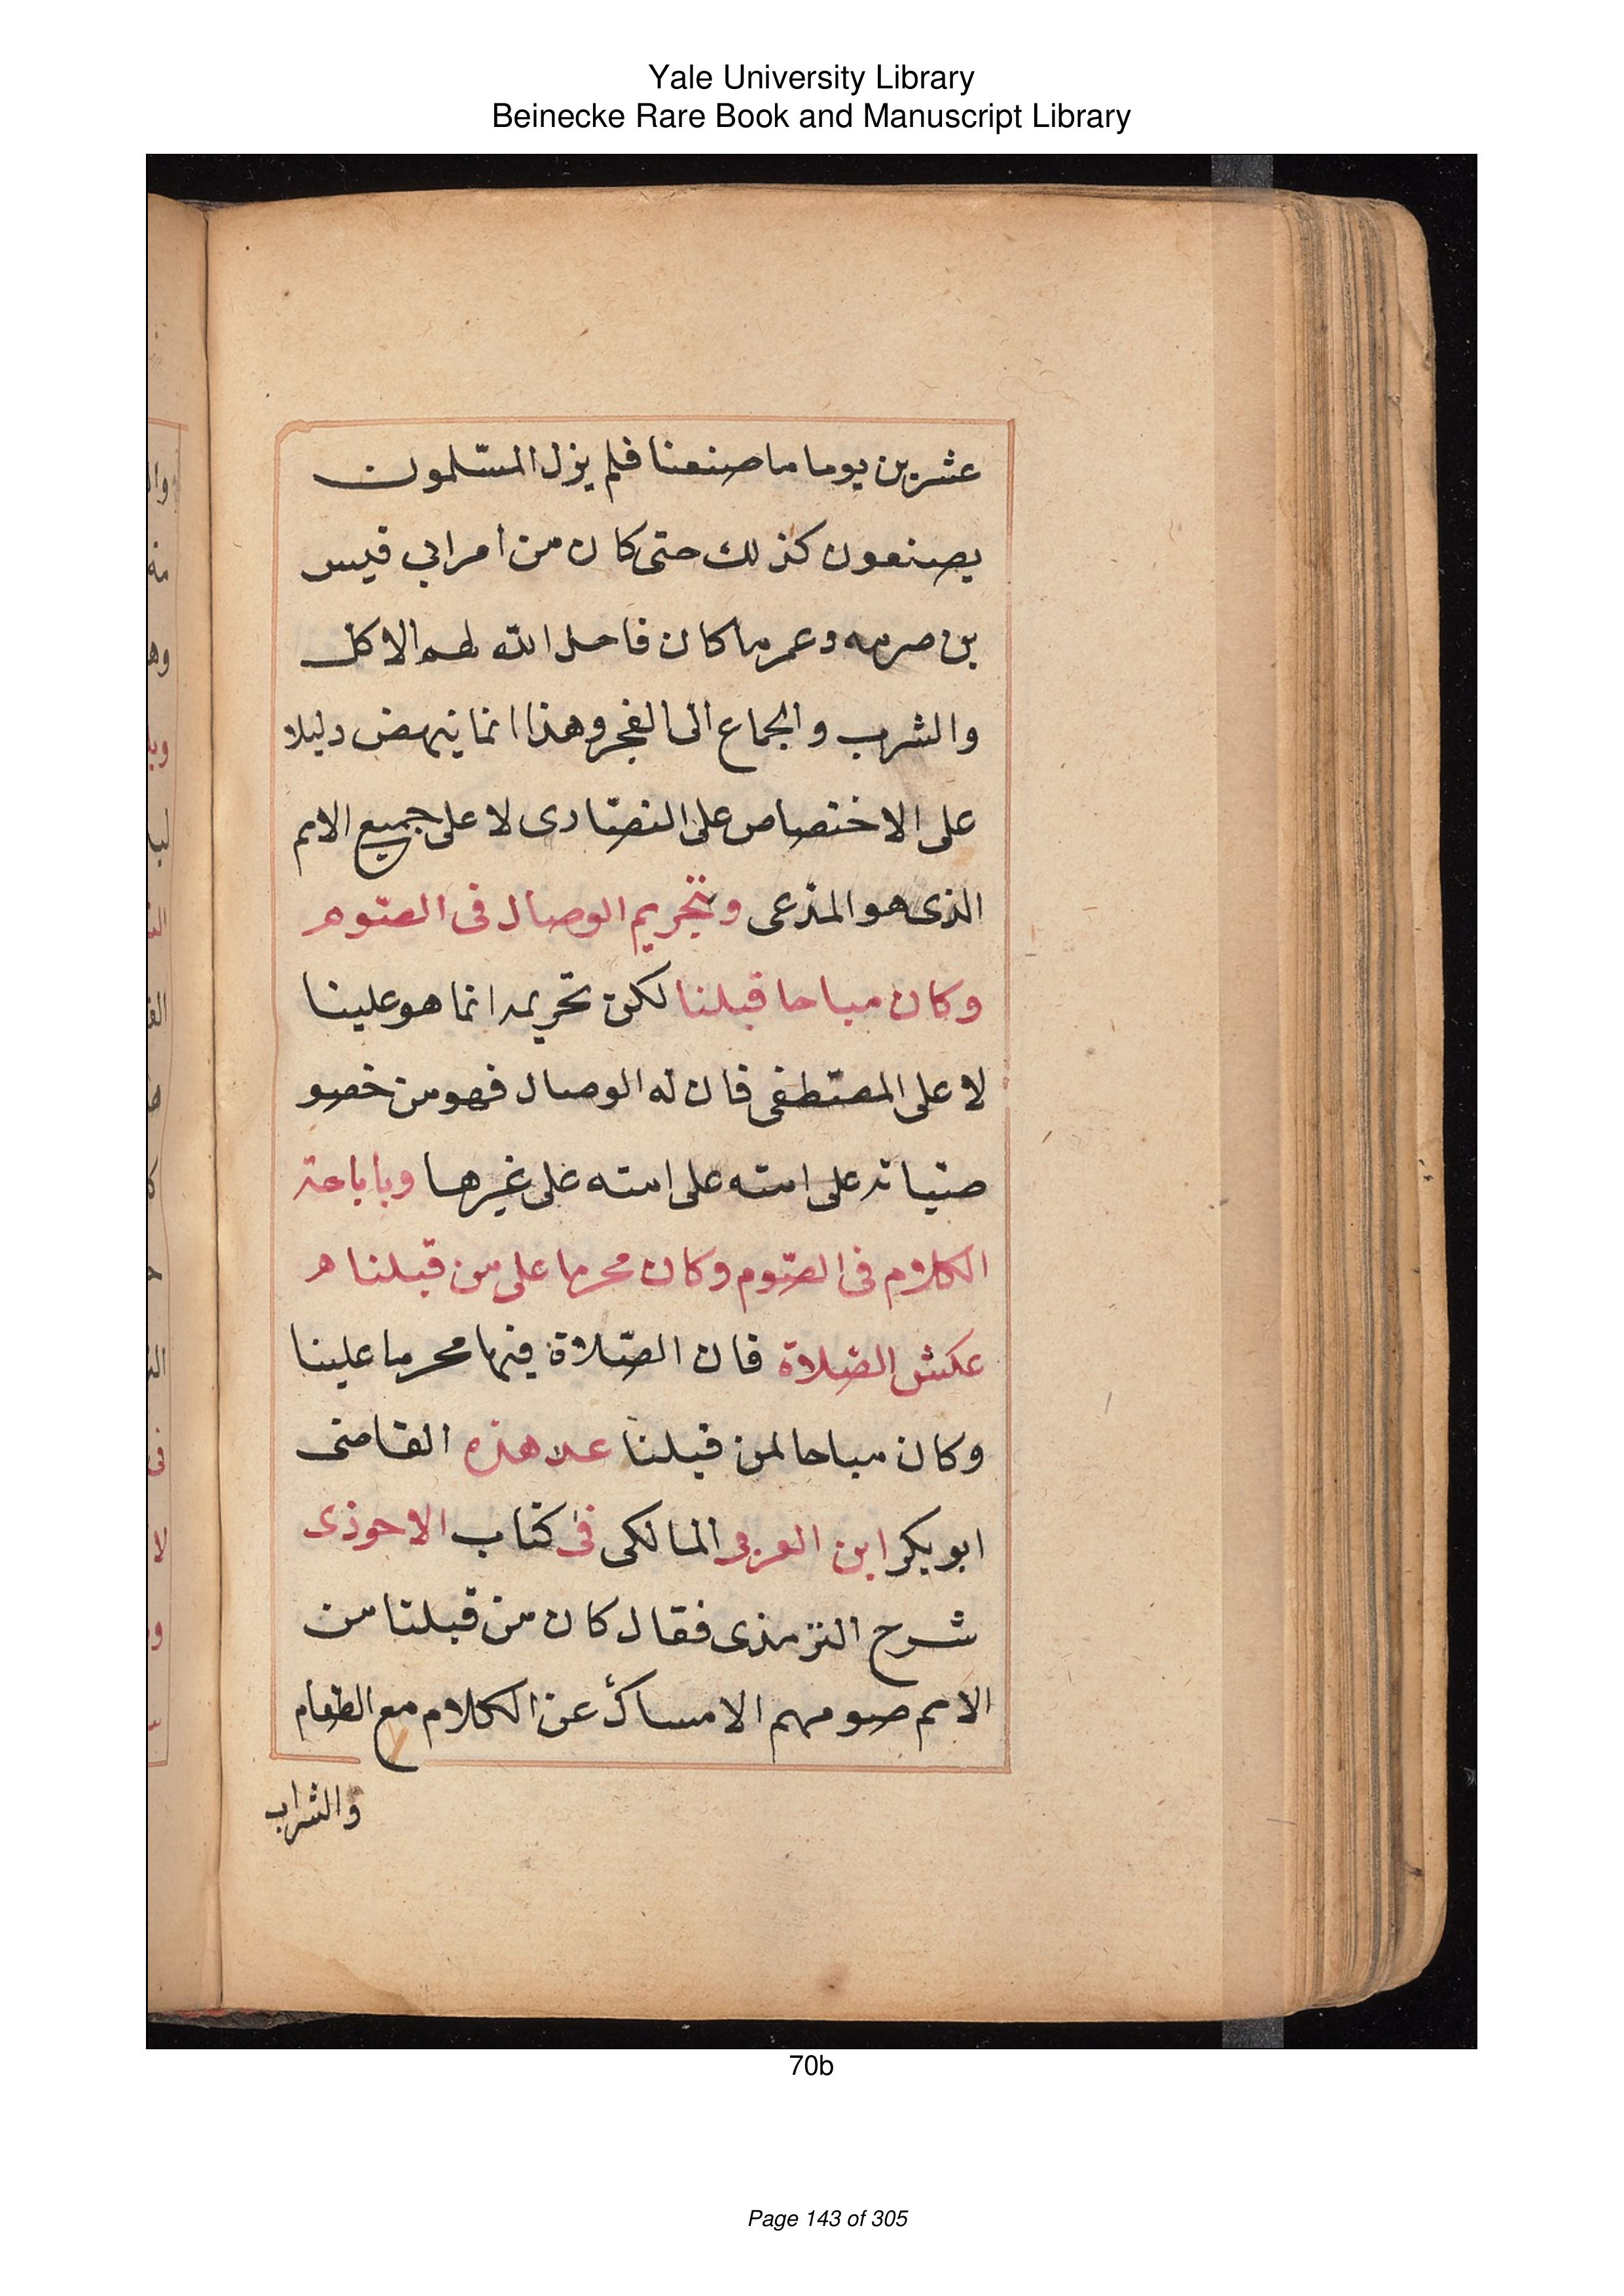 Yale University Library
Beinecke Rare Book and Manuscript Library
عشرين يوما ما صنعنا فلم يزل المسلمون
يصنعون كذلك حتى كان من امر ابي قيس
بن صرمه وعمر ما كان فاحل الله لهم الاكل
والشرب والجماع الى الفجر وهذا انما ينهض دليلا
على الاختصاص على النصارى لا على جميع الامم
الذى هو المدعى وبتحريم الوصال فى الصوم
وكان مباحا قبلنا لكن تحريمه انما هو علينا
لا على المصطفى فان له الوصال فهو من خصو
صياته على امته على امته على غيرها وباباحة
الكلام فى الصوم وكان محرما على من قبلنا
عكس الصلاة فان الصلاة فيها محرما علينا
وكان مباحا لمن قبلنا عد هذه القاضى
ابو بكر ابن العربى المالكى فى كتاب الاحوذى
شرح الترمذى فقال كان من قبلنا من
الامم صومهم الامساك عن الكلام مع الطعام
والشراب
70b
Page 143 of 305